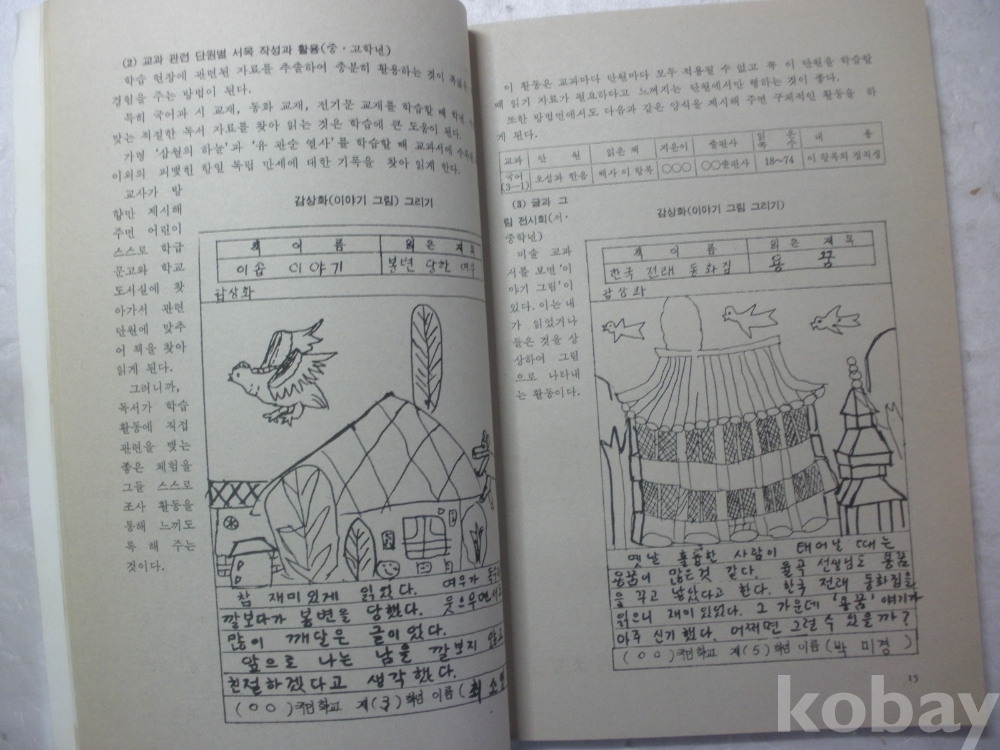 (2) 교과 관련 단원별 서목 작성과 활용(중·고학년)
학습 현장에 관련된 자료를 추출하여 충분히 활용하는 것이
경험을 주는 방법이 된다.
특히 국어과 시 교재, 동화 교재, 전기문 교재를 학습할 때
맞는 적절한 독서 자료를 찾아 읽는 것은 학습에 큰 도움이 된다.
가령 '삼월의 하늘'과 '유관순 열사'를 학습할 때 교과서에
이외의 피맺힌 항일 독립 만세에 대한 기록을 찾아 읽게 한다.
교사가 방
향만 제시해
주면 어린이
스스로 학급
문고와 학교
도서실에 찾
아가서 관련
단원에 맞추
어 책을 찾아
읽게 된다.
그러니까,
독서가 학습
활동에 직접
관련을 맺는
좋은 체험을
그들 스스로
조사 활동을
통해 느끼도
록 해 주는
것이다.
감상화(이야기 그림) 그리기
책 이름 읽은 제목
이솝 이야기 봉변 당한 여우
감상화
참 재미있게 읽었다. 여우가
깔보다가 봉변을 당했다. 웃으면서
많이 깨달은 글이었다.
앞으로 나는 남을 깔보지 않고
친절하겠다고 생각했다.
(○○)국민학교 제(3)학년 이름(최소
이 활동은 교과마다 단원마다 모두 적용될 수 없고 꼭 이 단원을 학습할
때 읽기 자료가 필요하다고 느껴지는 단원에서만 행하는 것이 좋다.
또한 방법면에서도 다음과 같은 양식을 제시해 주면 구체적인 활동을 하
게 된다.
교과 단원 읽은 책 지은이 출판사 읽은 쪽수 내용
국어(3-1) 오성과 한음 백사 이항복 ○○○ ○○출판사 18~74 이항복의 정직성
(3) 글과 그
림 전시회(저·
중학년)
미술 교과
서를 보면 '이
야기 그림'이
있다. 이는 내
가 읽었거나
들은 것을 상
상하여 그림
으로 나타내
는 활동이다.
감상화(이야기 그림 그리기)
책 이름 읽은 제목
한국 전래 동화집 용꿈
감상화
옛날 훌륭한 사람이 태어날 때는
용꿈이 많은것 같다. 율곡 선생님도 용꿈
을 꾸고 낳았다고 한다. 한국 전래 동화집을
읽으니 재미있었다. 그 가운데 '용꿈' 얘기가
아주 신기했다. 어쩌면 그럴 수 있을까?
(○○)국민학교 제(5)학년 이름(박미경)
15
kobay